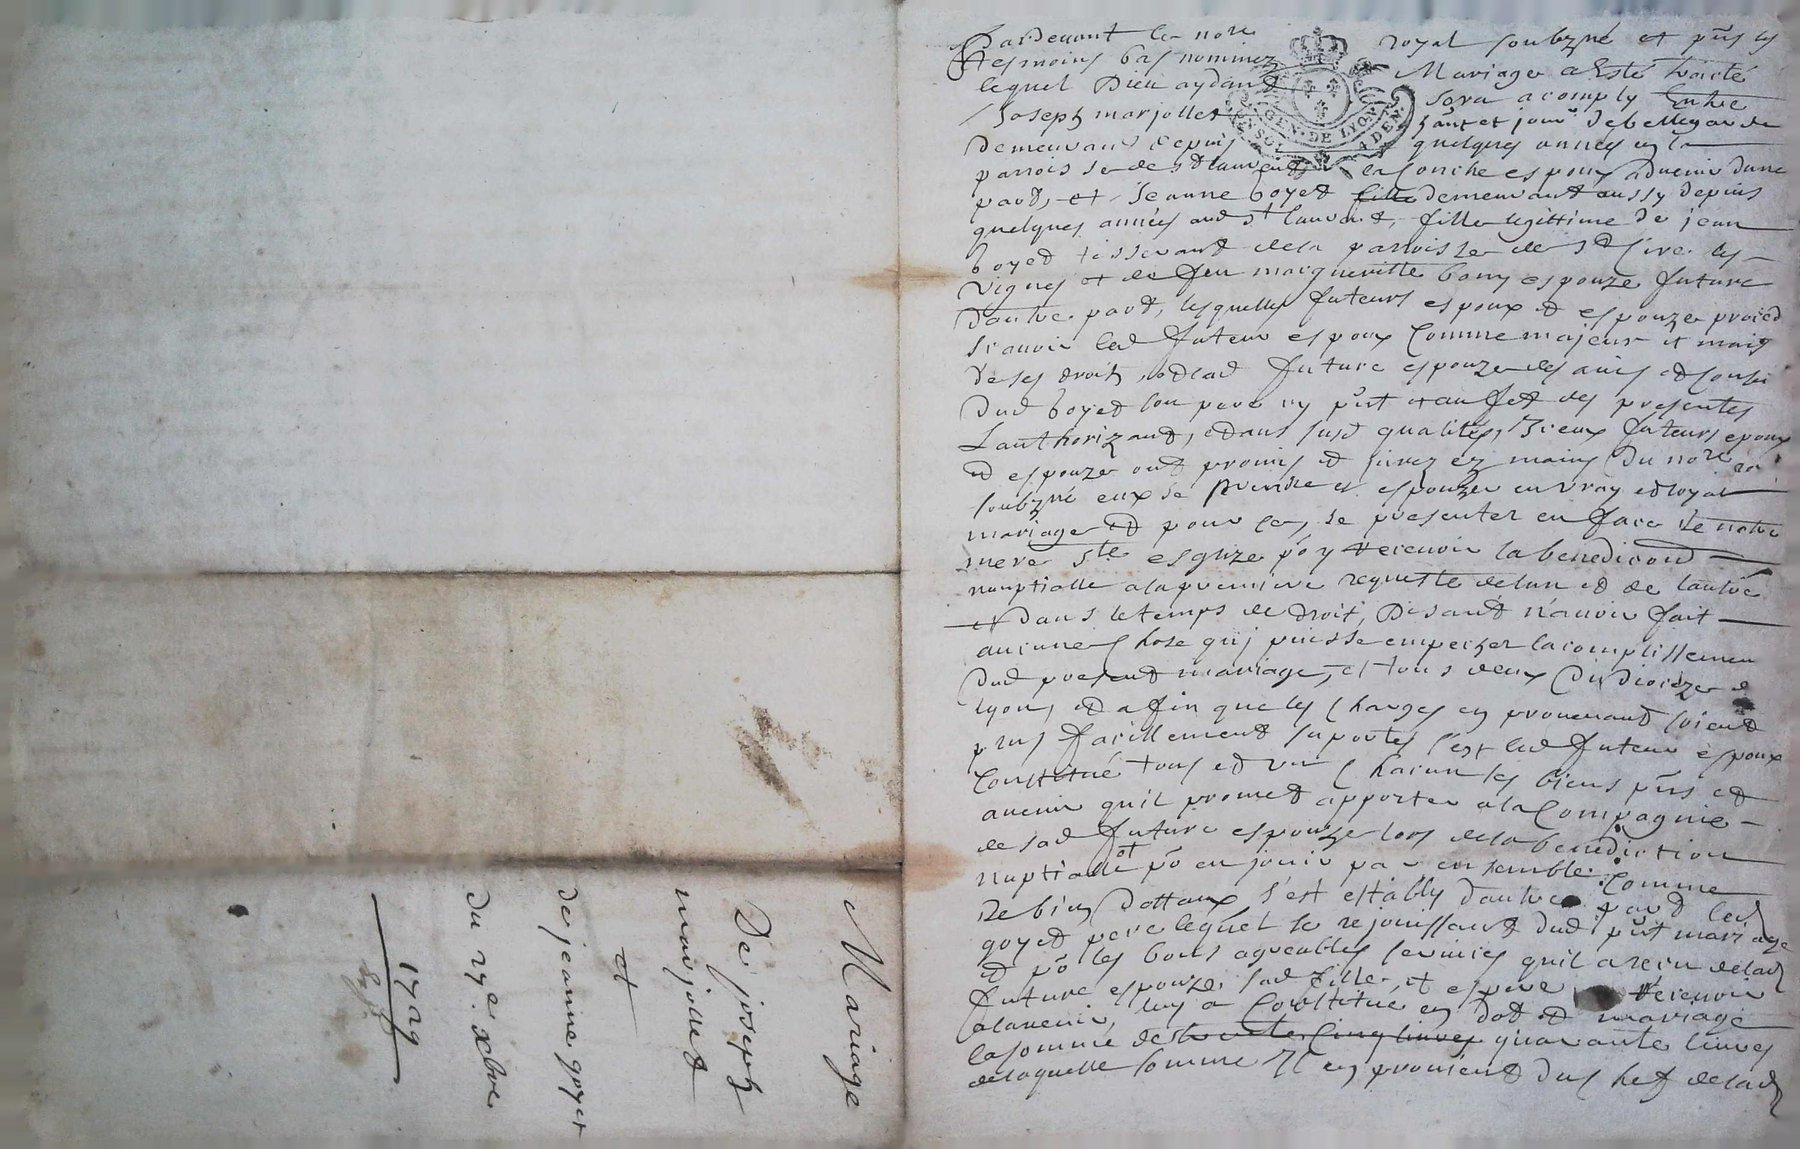 Pardevant le nore royal soubzné et pñs les
tesmoins bas nommez Mariage a esté traicté
lequel Dieu aydant sera acomply Entre
Joseph marjollet
demeurant depuis quelques années en la
parroisse de st laurent la Conche espoux advenir dune
part, et Jeanne Goyet fille demeurant aussy depuis
quelques années aud st laurent, fille legittime de jean
Goyet tisserant de la parroisse de st Cire les
vignes et de feu margueritte bony espouze future
dautre part, lesquelles futeurs espoux et espouze proced
scavoir led futeur espoux Comme majeur et mais
de ses droits, et lad future espouze des avis et conse
dud Goyet son pere icy pñt et au fet des presentes
Lauthorizant, et dans susd qualités, Iceux futeurs epoux
et espouze ont promis et jurez ez mains du nore roi
soubzné eux se prendre et espouzer en vray et loyal
mariage et pour ce, se presenter en face de notre
mere ste esglize po y recevoir la benediction
nuuptialle a la premiere requeste de lun et de lautre
et dans le temps de droit, Disant n'avoir fait
aucune Chose quj puisse empecher lacomplissemen
dud present mariage, et tous deux du diocèze de
lyon, et afin que les Charges en provenant soient
plus facillement suportés s'est led futeur espoux
Constitué tous et un Chacun ses biens pñs et
avenir quil promet apporter a la Compagnie
de sad future espouze lors de la benediction
nuptialle et po en jouir par ensemble. Comme
de bien dottaux s'est establÿ dautre part led
goyet pere lequel se rejouissant dud pñt mariage
et po les bons agreables services quil a recu de lad
future espouze sad fille, et espere recevoir
a lavenir, luy a Constitué en dot et mariage
la somme de trente Cinq livres quarante livres
de laquelle somme Il en provient du Chef de lad
GEN. DE LYON
Mariage
De joseph
marjollet
et
de jeanne goyet
du 27e xbre
1729